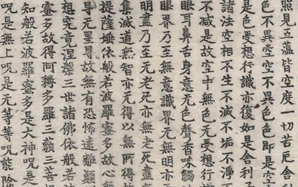 照見五蘊皆空度一切苦厄舍
色不異空空不異色色即是空
是色受想行識亦復如是舍利
諸法空相不生不滅不垢不淨
不減是故空中无色无受想行
眼耳鼻舌身意无色聲香味觸
眼界乃至无意識界无無明亦
明盡乃至无老死亦无老死盡
集滅道無智亦无得以無所得
提薩埵依般若波羅蜜多故心
㝵无罣㝵故無有恐怖遠離顛
想究竟涅槃三世諸佛依般若
蜜多故得阿耨多羅三藐三菩
知般若波羅蜜多是大神呪是
呪是无上呪是无等等呪能除